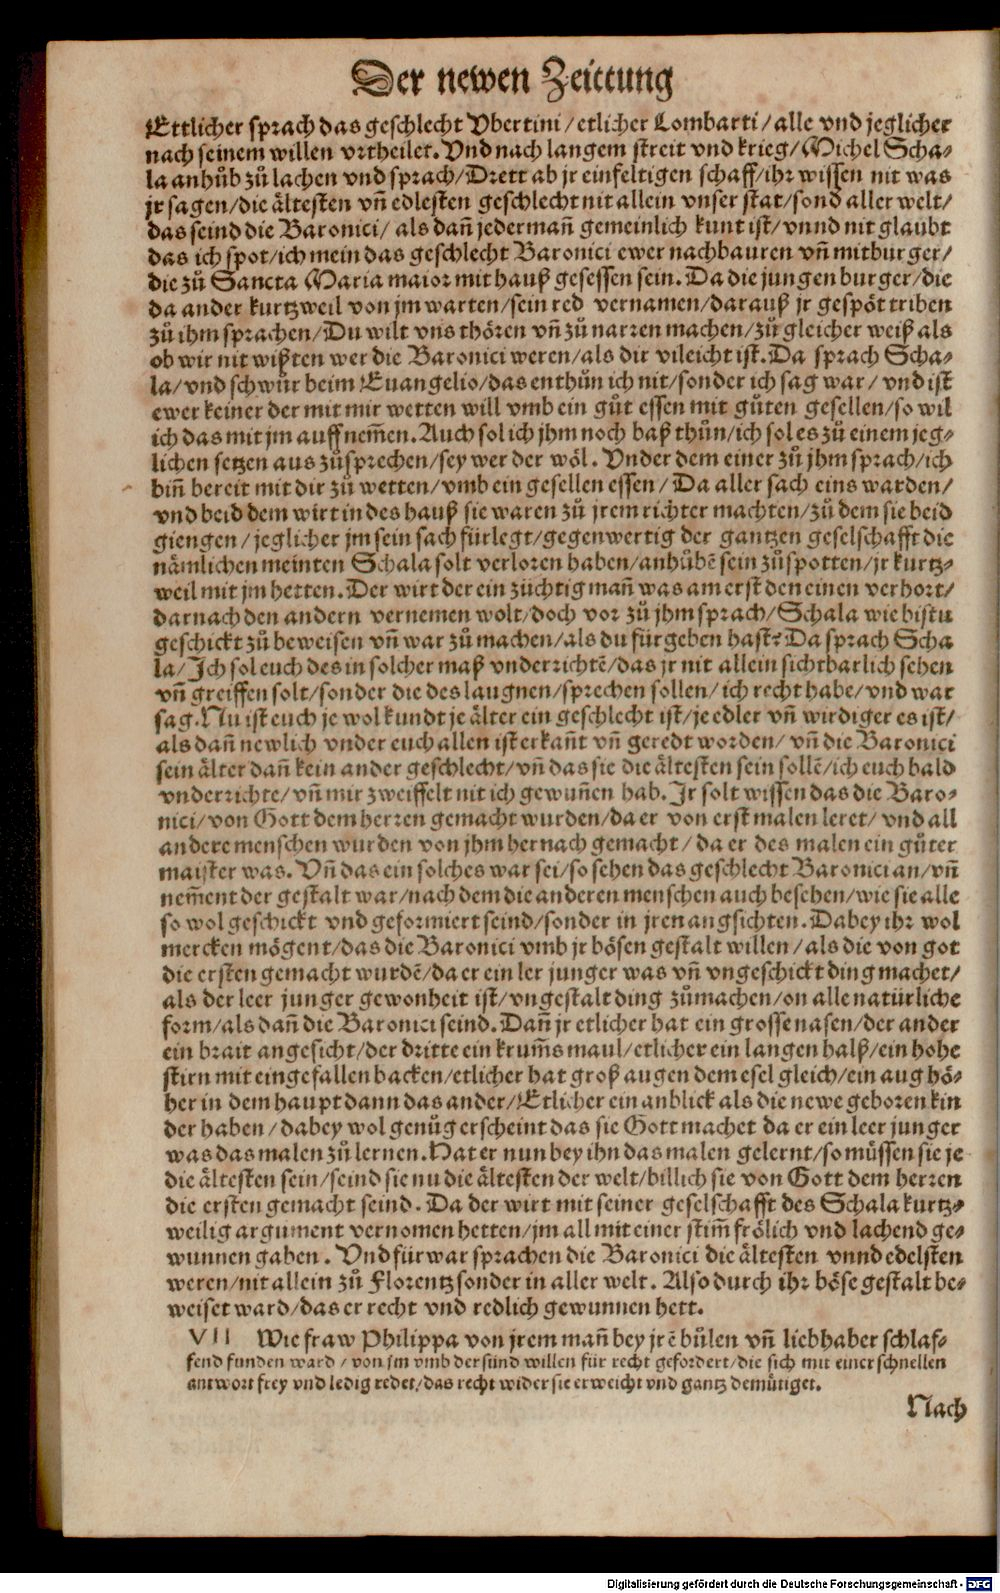 Der newen Zeittung
Ettlicher sprach das geschlecht Vbertini/etlicher Lombarti/alle vnd jeglicher
nach seinem willen vrtheilet. Vnd nach langem streit vnd krieg/Michel Scha⸗
la anhůb zů lachen vnd sprach/Drett ab jr einfeltigen schaff/ihr wissen nit was
jr sagen/die ältesten vñ edlesten geschlecht nit allein vnser stat/sond aller welt/
das seind die Baronici/ als dañ jedermañ gemeinlich kunt ist/vnnd nit glaubt
das ich spot/ich mein das geschlecht Baronici ewer nachbauren vñ mitburger/
die zů Sancta Maria maior mit hauß gesessen sein. Da die jungen burger/die
da ander kurtzweil von jm warten/sein red vernamen/darauß jr gespöt triben
zů ihm sprachen/Du wilt vns thören vñ zů narren machen/zů gleicher weiß als
ob wir nit wißten wer die Baronici weren/als dir vileicht ist. Da sprach Scha⸗
la/vnd schwůr beim Euangelio/das enthůn ich nit/sonder ich sag war/ vnd ist
ewer keiner der mit mir wetten will vmb ein gůt essen mit gůten gesellen/so wil
ich das mit jm auff nem̃en. Auch sol ich jhm noch baß thůn/ich sol es zů einem jeg⸗
lichen setzen aus zůsprechen/sey wer der wöl. Vnder dem einer zů jhm sprach/ich
biñ bereit mit dir zů wetten/vmb ein gesellen essen/ Da aller sach eins warden/
vnd beid dem wirt in des hauß sie waren zů jrem richter machten/zů dem sie beid
giengen/jeglicher jm sein sach fürlegt/gegenwertig der gantzen geselschafft die
nämlichen meinten Schala solt verloren haben/anhůbẽ sein zůspotten/jr kurtz⸗
weil mit jm hetten. Der wirt der ein züchtig mañ was am erst den einen verhort/
darnach den andern vernemen wolt/doch vor zů jhm sprach/Schala wie bistu
geschickt zů beweisen vñ war zů machen/als du fürgeben hast? Da sprach Scha
la/Ich sol euch des in solcher maß vnderrichtẽ/das jr nit allein sichtbarlich sehen
vñ greiffen solt/sonder die des laugnen/sprechen sollen/ich recht habe/vnd war
sag. Nu ist euch je wol kundt je älter ein geschlecht ist/je edler vñ wirdiger es ist/
als dañ newlich vnder euch allen ist erkañt vñ geredt worden/ vñ die Baronici
sein älter dañ kein ander geschlecht/vñ das sie die ältesten sein sollẽ/ich euch bald
vnderrichte/vñ mir zweiffelt nit ich gewuñen hab. Ir solt wissen das die Baro⸗
nici/von Gott dem herren gemacht wurden/da er von erst malen leret/ vnd all
andere menschen wurden von jhm hernach gemacht/ da er des malen ein gůter
maister was. Vñ das ein solches war sei/so sehen das geschlecht Baronici an/vñ
nem̃ent der gestalt war/nach dem die anderen menschen auch besehen/wie sie alle
so wol geschickt vnd geformiert seind/sonder in jren angsichten. Dabey ihr wol
mercken mögent/das die Baronici vmb jr bösen gestalt willen/als die von got
die ersten gemacht wurdẽ/da er ein ler junger was vñ vngeschickt ding machet/
als der leer junger gewonheit ist/vngestalt ding zůmachen/on alle natürliche
form/als dañ die Baronici seind. Dañ jr etlicher hat ein grosse nasen/der ander
ein brait angesicht/der dritte ein krum̃s maul/etlicher ein langen halß/ein hohe
stirn mit eingefallen backen/etlicher hat groß augen dem esel gleich/ein aug hö⸗
her in dem haupt dann das ander/Etlicher ein anblick als die newe geboren kin
der haben/dabey wol genůg erscheint das sie Gott machet da er ein leer junger
was das malen zů lernen. Hat er nun bey ihn das malen gelernt/so müssen sie je
die ältesten sein/seind sie nu die ältesten der welt/billich sie von Gott dem herren
die ersten gemacht seind. Da der wirt mit seiner geselschafft des Schala kurtz⸗
weilig argument vernomen hetten/jm all mit einer stim̃ frölich vnd lachend ge⸗
wunnen gaben. Vnd fürwar sprachen die Baronici die ältesten vnnd edelsten
weren/nit allein zů Florentz sonder in aller welt. Also durch ihr böse gestalt be⸗
weiset ward/das er recht vnd redlich gewunnen hett.
VII Wie fraw Philippa von jrem mañ bey jrẽ bůlen vñ liebhaber schlaf⸗
fend funden ward/von jm vmb der sünd willen für recht gefordert/die sich mit einer schnellen
antwort frey vnd ledig redet/das recht wider sie erweicht vnd gantz demütiget.
Nach
Digitalisierung gefördert durch die Deutsche Forschungsgemeinschaft - DFG